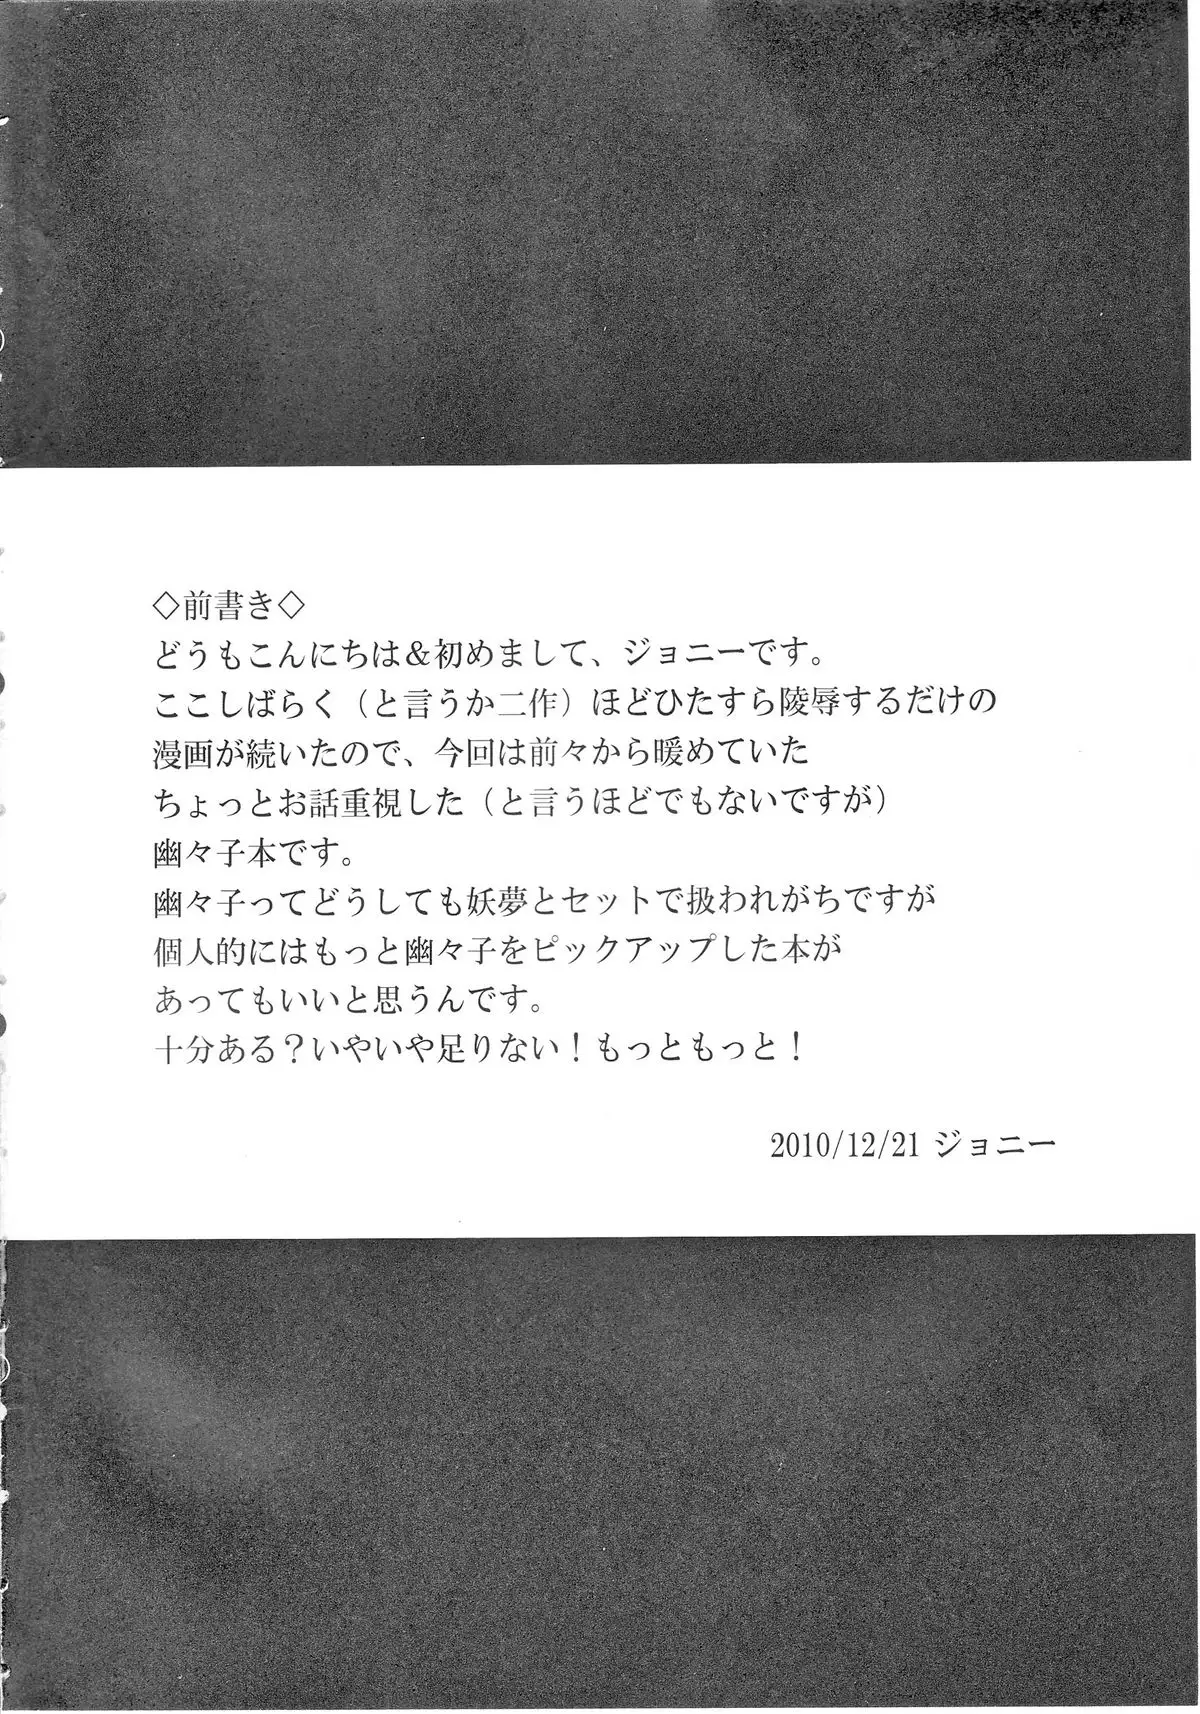 ◇前書き◇
どうもこんにちは&初めまして、ジョニーです。
ここしばらく（と言うか二作）ほどひたすら陵辱するだけの
漫画が続いたので、今回は前々から暖めていた
ちょっとお話重視した（と言うほどでもないですが）
幽々子本です。
幽々子ってどうしても妖夢とセットで扱われがちですが
個人的にはもっと幽々子をピックアップした本が
あってもいいと思うんです。
十分ある？いやいや足りない！もっともっと！
2010/12/21 ジョニー